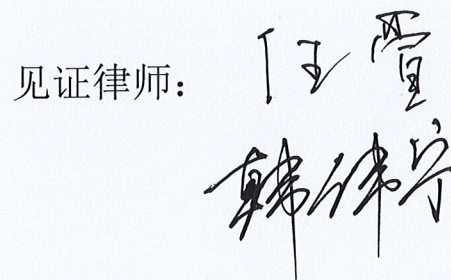 见证律师：任萱
韩伟宁